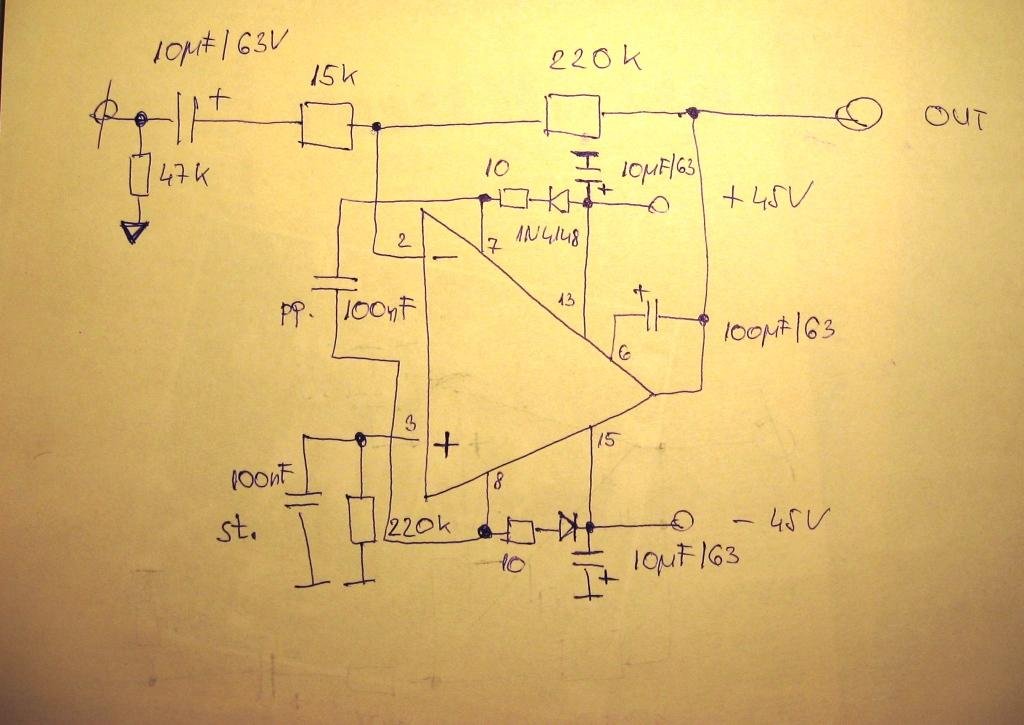 10µF/63V
15k
220k
+
OUT
47k
10
10µF/63
+
+45V
1N4148
2
7
-
13
pp.
100nF
+
100µF/63
6
3
+
15
100nF
8
st.
220k
- 45V
10
10µF/63
+